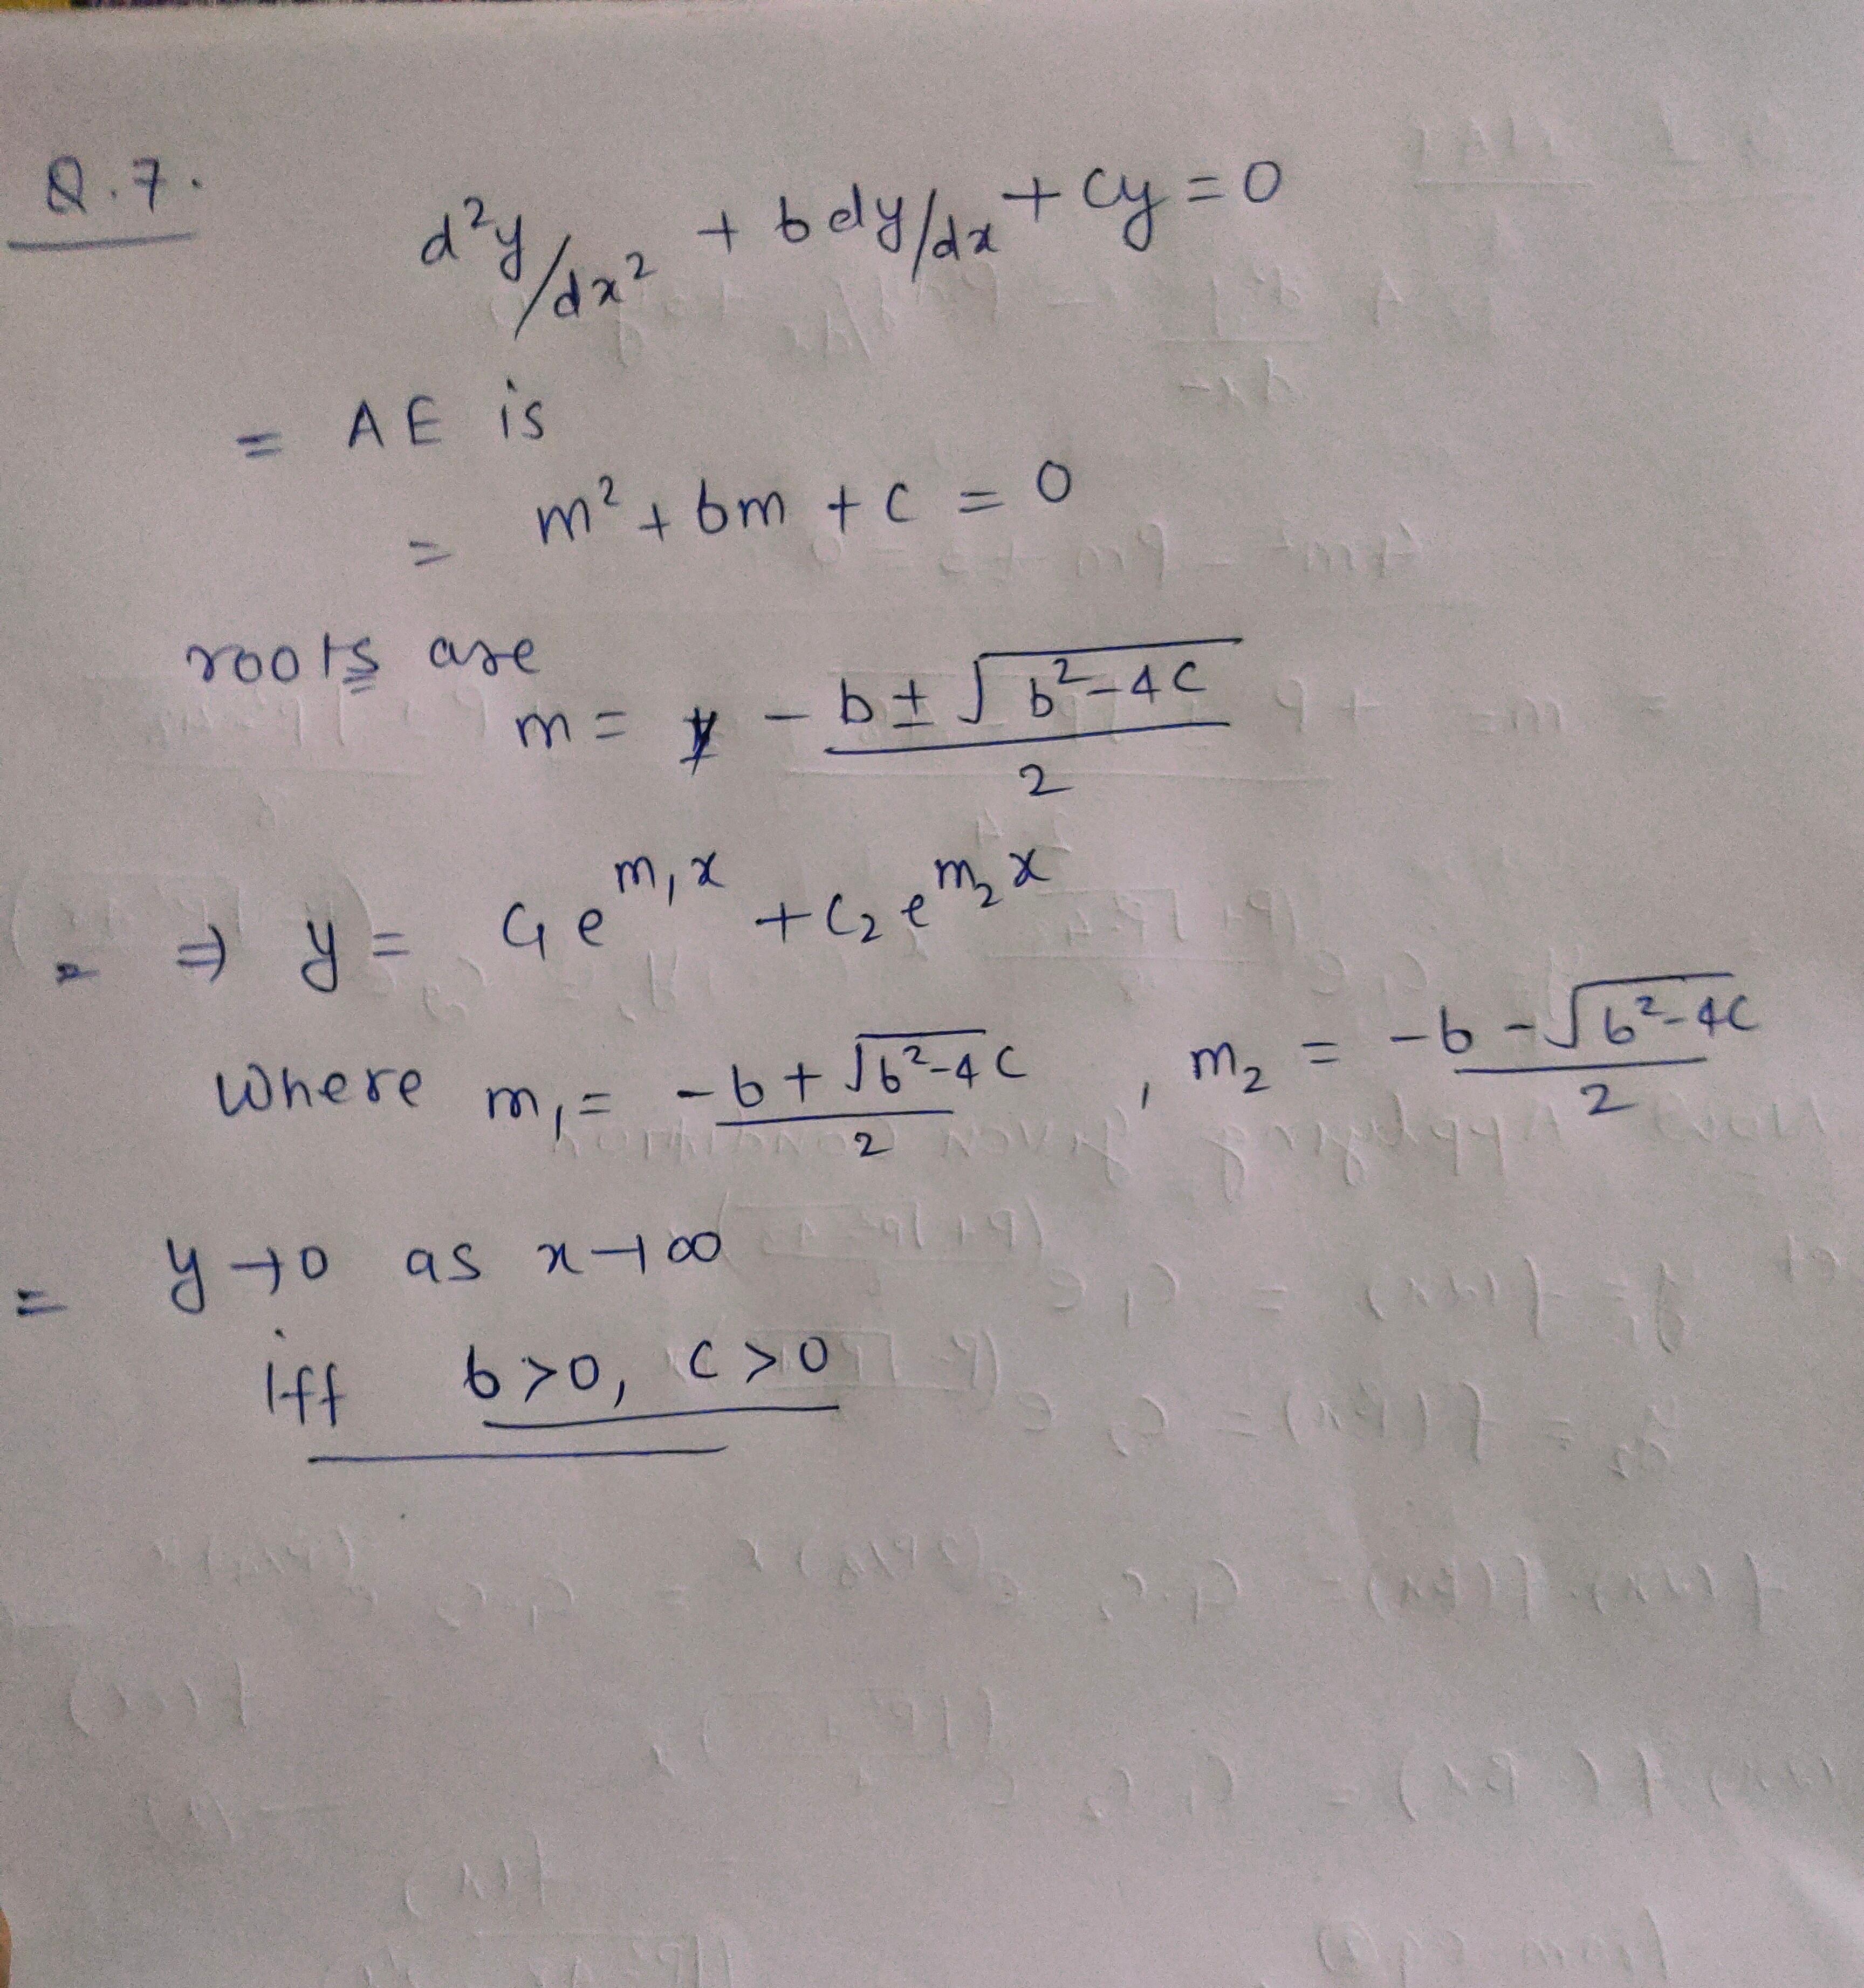 Q.7. d²y/dx² + b dy/dx + cy = 0
= AE is
= m² + bm + c = 0
roots are
m = - b ± √b²-4c / 2
= ⇒ y = C₁e^m₁x + C₂e^m₂x
where m₁ = -b + √b²-4c / 2 , m₂ = -b - √b²-4c / 2
= y → 0 as x → ∞
iff b>0, c>0